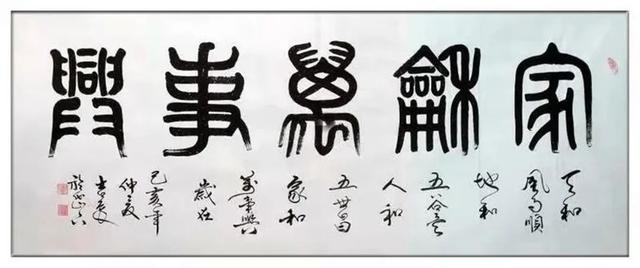 家龢萬事興
天和
風雨順
地和
五谷豐
人和
五世昌
家和
萬事興
歲在
己亥年
仲夏